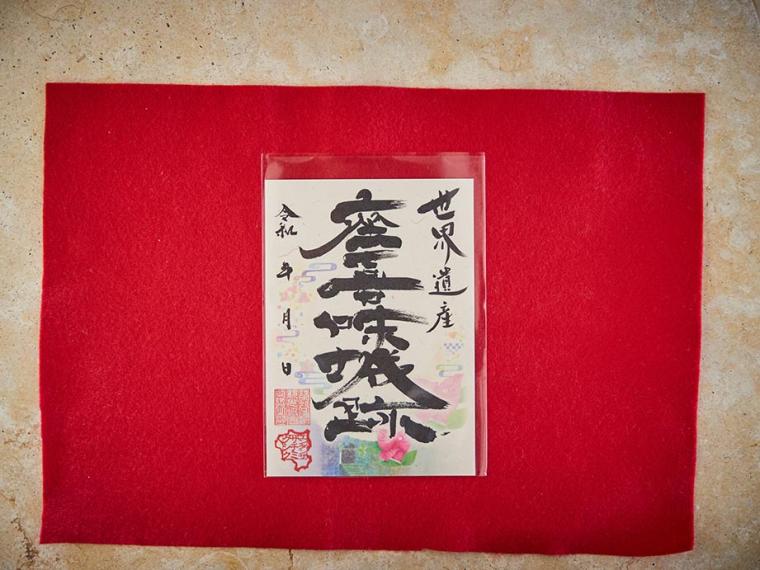 世界遺産
座喜味城跡
令和 年 月 日